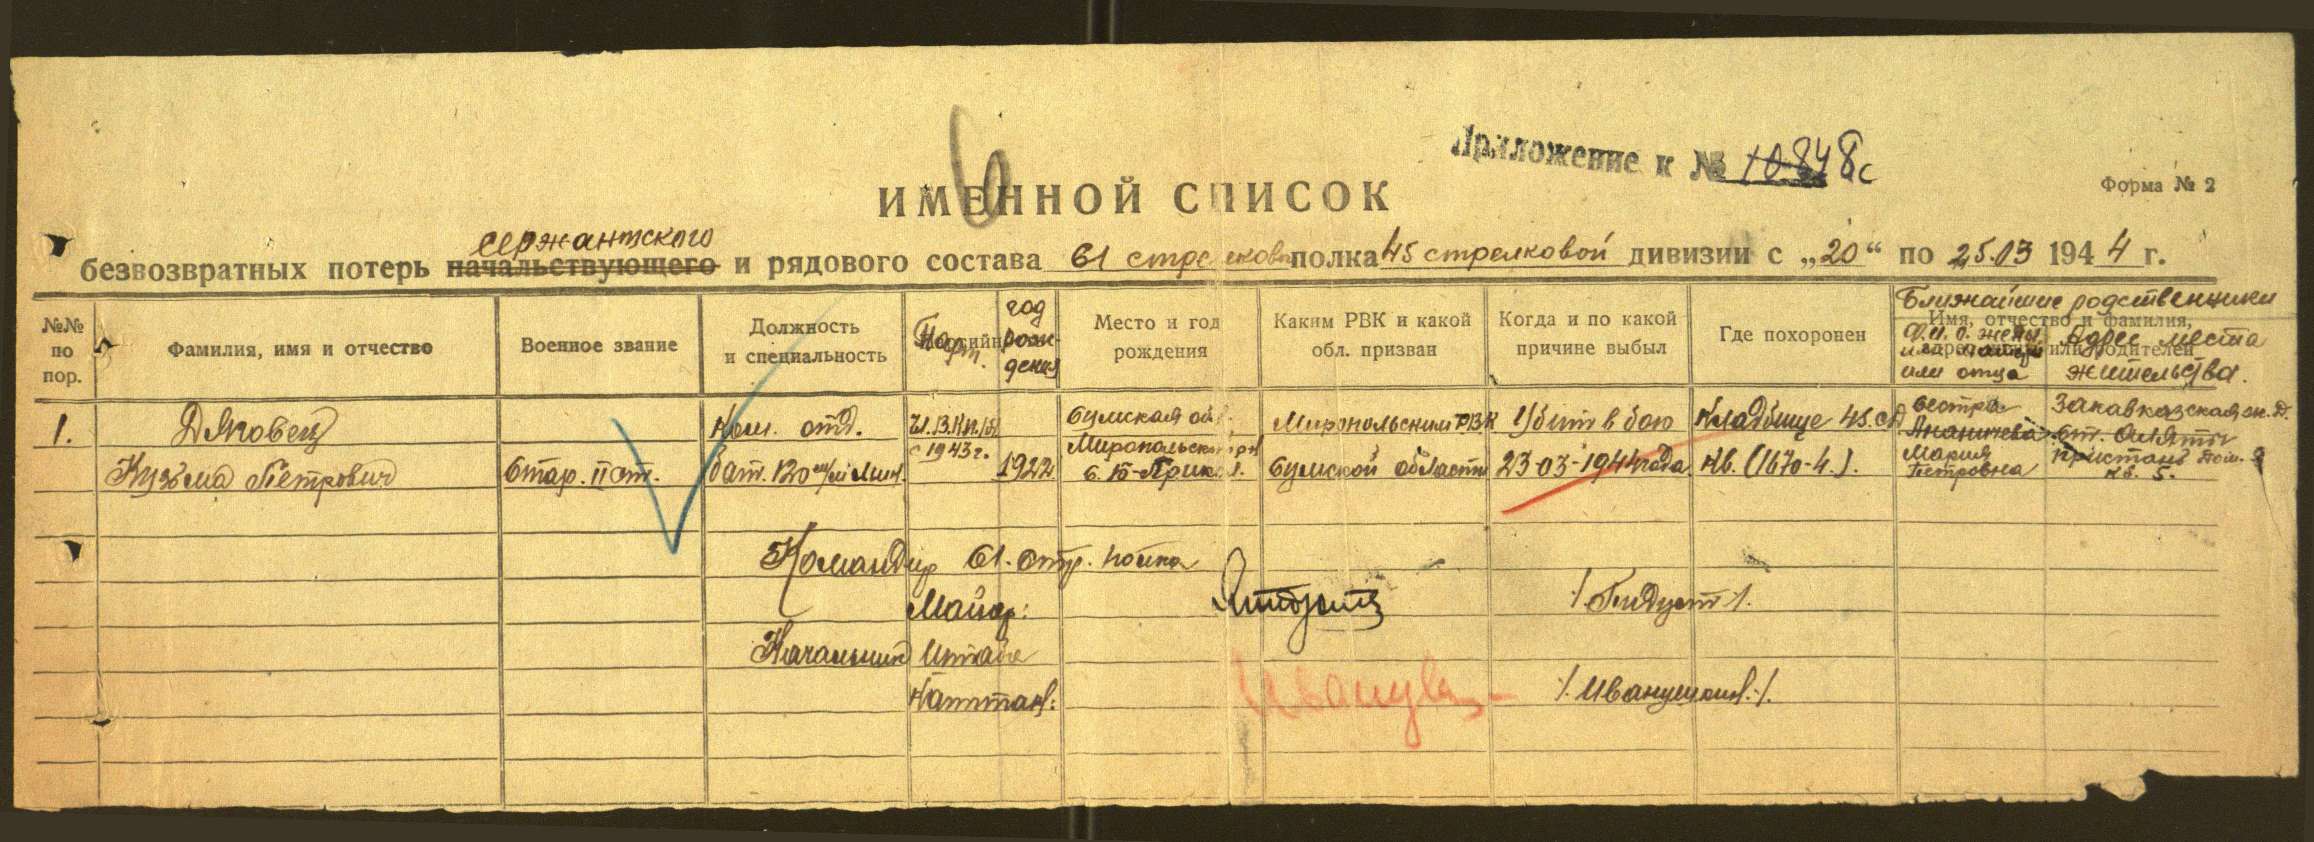 Приложение к № 10848с
ИМЕННОЙ СПИСОК
Форма № 2
6
сержантского
безвозвратных потерь начальствующего и рядового состава 61 стрелков полка 45 стрелковой дивизии с „20“ по 25.03 1944 г.
№№ по пор.
Фамилия, имя и отчество
Военное звание
Должность и специальность
Парт.
год рождения
Место и год рождения
Каким РВК и какой обл. призван
Когда и по какой причине выбыл
Где похоронен
Ближайшие родственники
Имя, отчество и фамилия,
Ф.И.О. жены или отца
Адрес места жительства.
1.
Дяковец
Кузьма Петрович
Стар. II ст.
Ком. отд.
бат. 120 м/м Мин.
Чл. ВКП/б/
с 1943 г.
1922
Сумская обл.
Миропольский р-н
Миропольским РВК
Сумской области
Убит в бою
23-03-1944 года
Кладбище 45 сд
Кв. (1670-4.).
Сестра
Ананичева
Мария
Петровна
Закавказская ж.д.
ст. Аляты
Пристань
кв. 5.
Командир 61. стр. полка
Майор:
Начальник Штаба
Капитан:
/. Иванушкин ./.